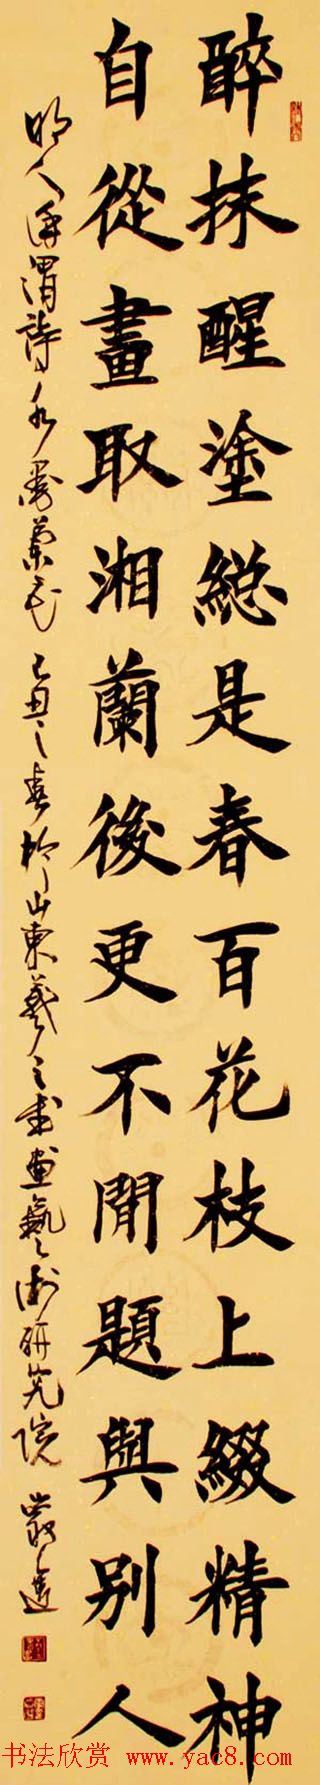 醉抹醒塗総是春百花枝上綴精神
自從畫取湘蘭後更不閒題與別人
明人徐渭詩水墨蘭花 己丑之春於山東羲之書畫藝術研究院
书法欣赏 www.yac8.com